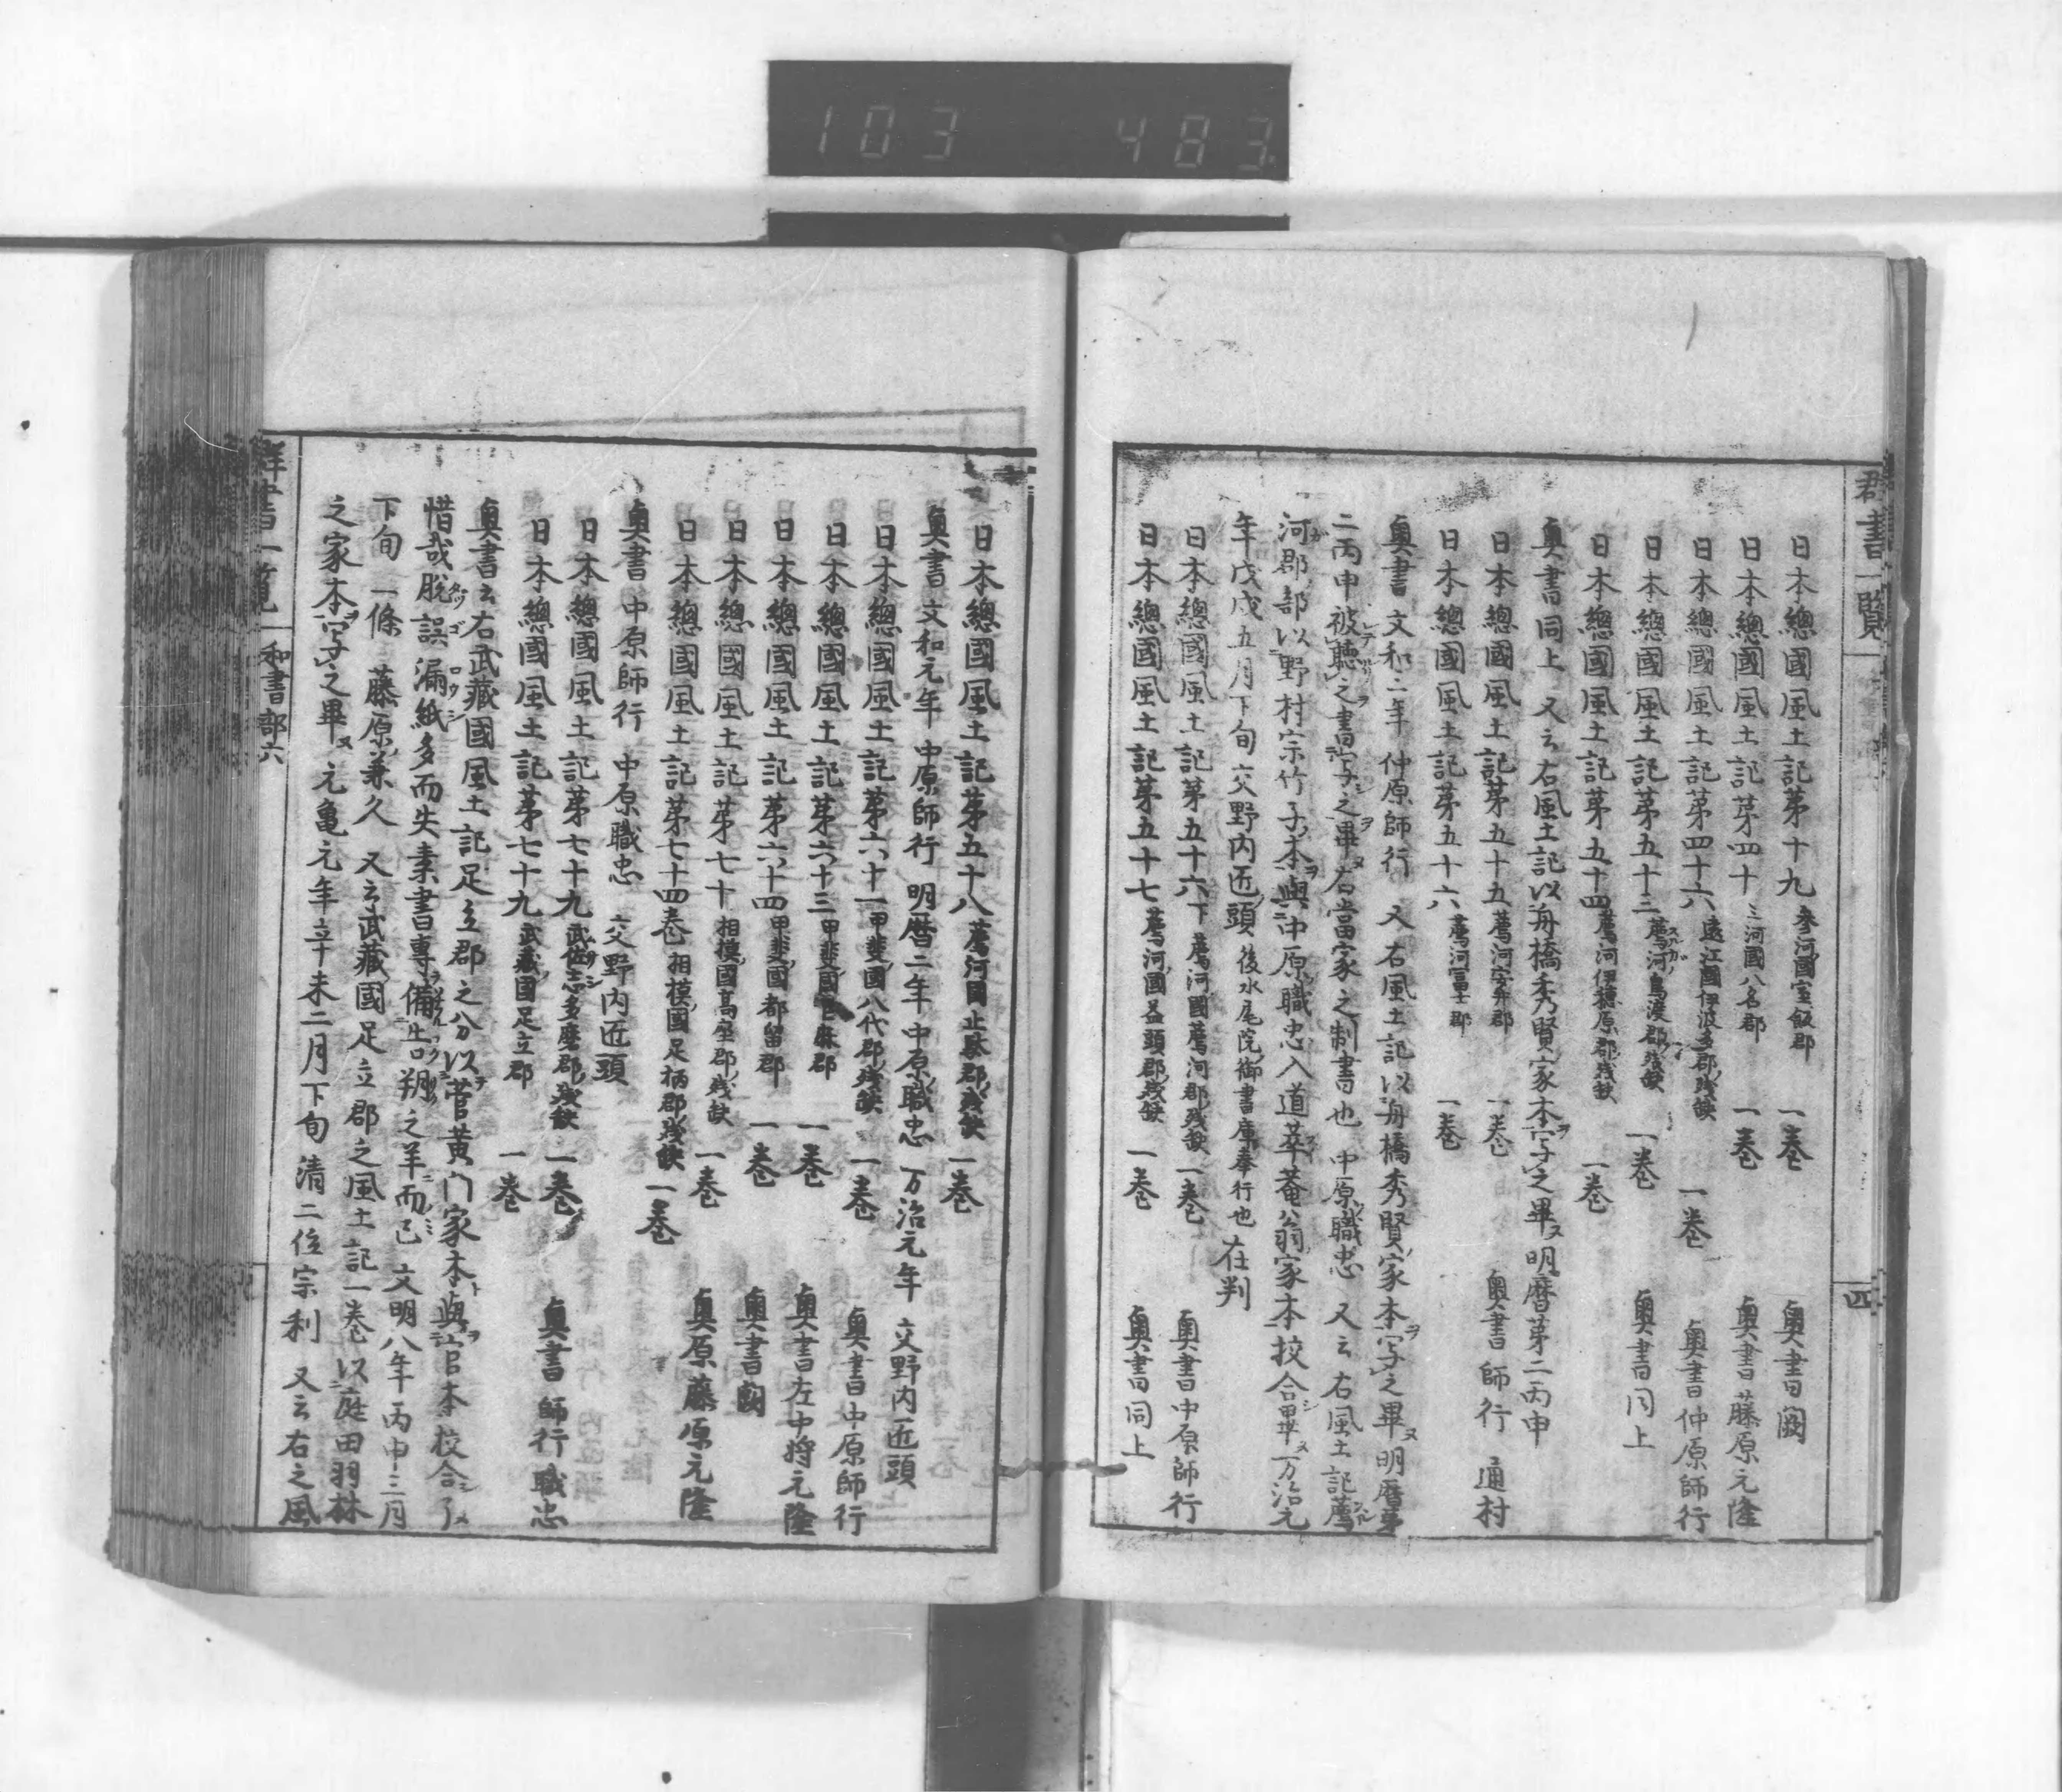 103 483
群書一覧
四
日本總國風土記苐十九 參河國宝飯郡 一巻 奥書闕
日本總國風土記苐四十 三河國八名郡 一巻 奥書藤原元隆
日本總國風土記苐四十六 遠江國伊波多郡残缺 一巻 奥書仲原師行
日本總國風土記苐五十二 薦河烏渡郡残缺 一巻 奥書同上
日本總國風土記苐五十四 薦河伊穂原郡残缺 一巻
奥書同上 又云右風土記以舟橋秀賢家本写之畢明暦苐二丙申
日本總國風土記苐五十五 薦河安弁郡 一巻 奥書師行 通村
日本總國風土記苐五十六 薦河冨士郡 一巻
奥書 文和二年 仲原師行 又右風土記以舟橋秀賢家本写之畢 明暦苐
二丙申被聴之書写之畢右當家之制書也 中原職忠 又云右風土記薦
河郡部以野村宗竹子本與中原職忠入道萃菴翁家本挍合畢万治元
年戊戌五月下旬交野内匠頭 後水尾院御書庫奉行也 在判
日本總國風土記苐五十六下 薦河國薦河郡残缺 一巻 奥書中原師行
日本總國風土記苐五十七 薦河國益頭郡残缺 一巻 奥書同上
日本總國風土記苐五十八 薦河國止駄郡残缺 一巻
奥書 文和元年 中原師行 明暦二年中原職忠 万治元年 交野内匠頭
日本總國風土記苐六十一 甲斐國八代郡残缺 一巻 奥書中原師行
日本總國風土記苐六十三 甲斐國巨麻郡 一巻 奥書左中将元隆
日本總國風土記苐六十四 甲斐國都留郡 一巻 奥書闕
日本總國風土記苐七十 相模國髙座郡残缺 一巻 奥原藤原元隆
日本總國風土記苐七十四巻 相模國足柄郡残缺 一巻
奥書 中原師行 中原職忠 交野内匠頭
日本總國風土記苐七十九 武佐志多麿郡残缺 一巻 奥書 師行職忠
日本總國風土記苐七十九 武蔵國足立郡 一巻
奥書云右武藏國風土記足立郡之分以菅黄门家本與官本挍合了
惜哉脱誤漏紙多而失素書専備告朔之羊而已 文明八年丙申三月
下旬 一條 藤原兼久 又云武藏國足立郡之風土記一巻以庭田羽林
之家本写之畢 元亀元年辛未二月下旬 清二位宗利 又云右之風
群書一覧 和書部六